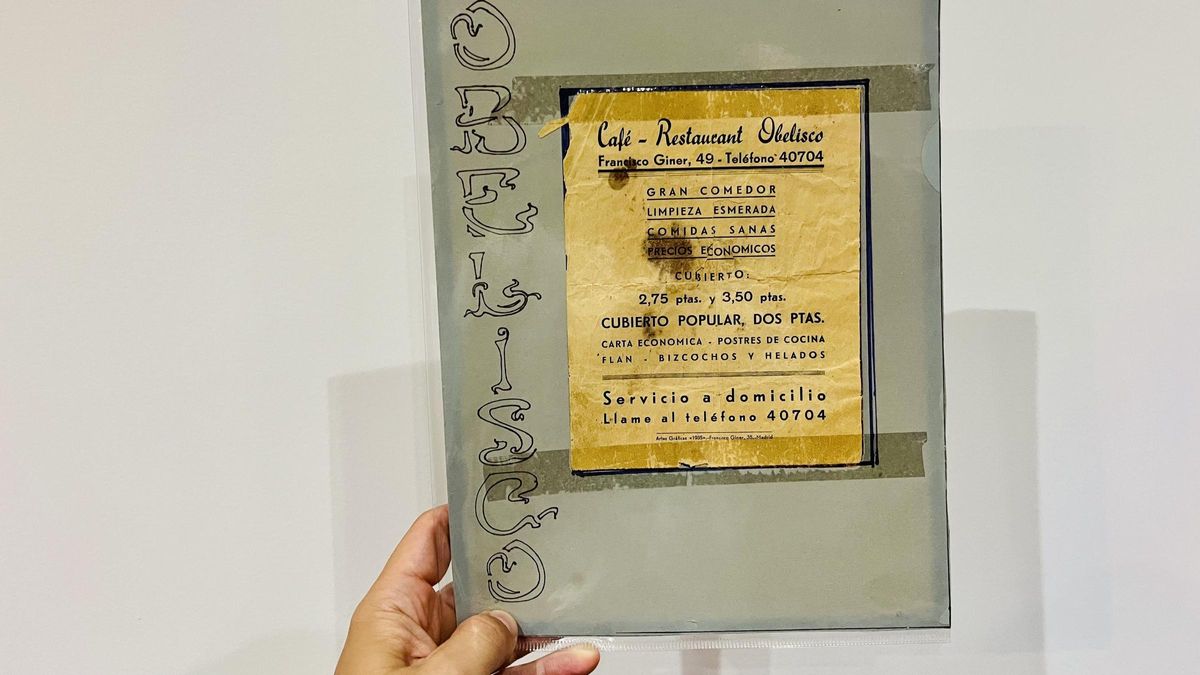 OBELISCO
Café - Restaurant Obelisco
Francisco Giner, 49 - Teléfono 40704
GRAN COMEDOR
LIMPIEZA ESMERADA
COMIDAS SANAS
PRECIOS ECONOMICOS
CUBIERTO:
2,75 ptas. y 3,50 ptas.
CUBIERTO POPULAR, DOS PTAS.
CARTA ECONOMICA - POSTRES DE COCINA
FLAN - BIZCOCHOS Y HELADOS
Servicio a domicilio
Llame al teléfono 40704
Artes Gráficas «1935».-Francisco Giner, 35.-Madrid